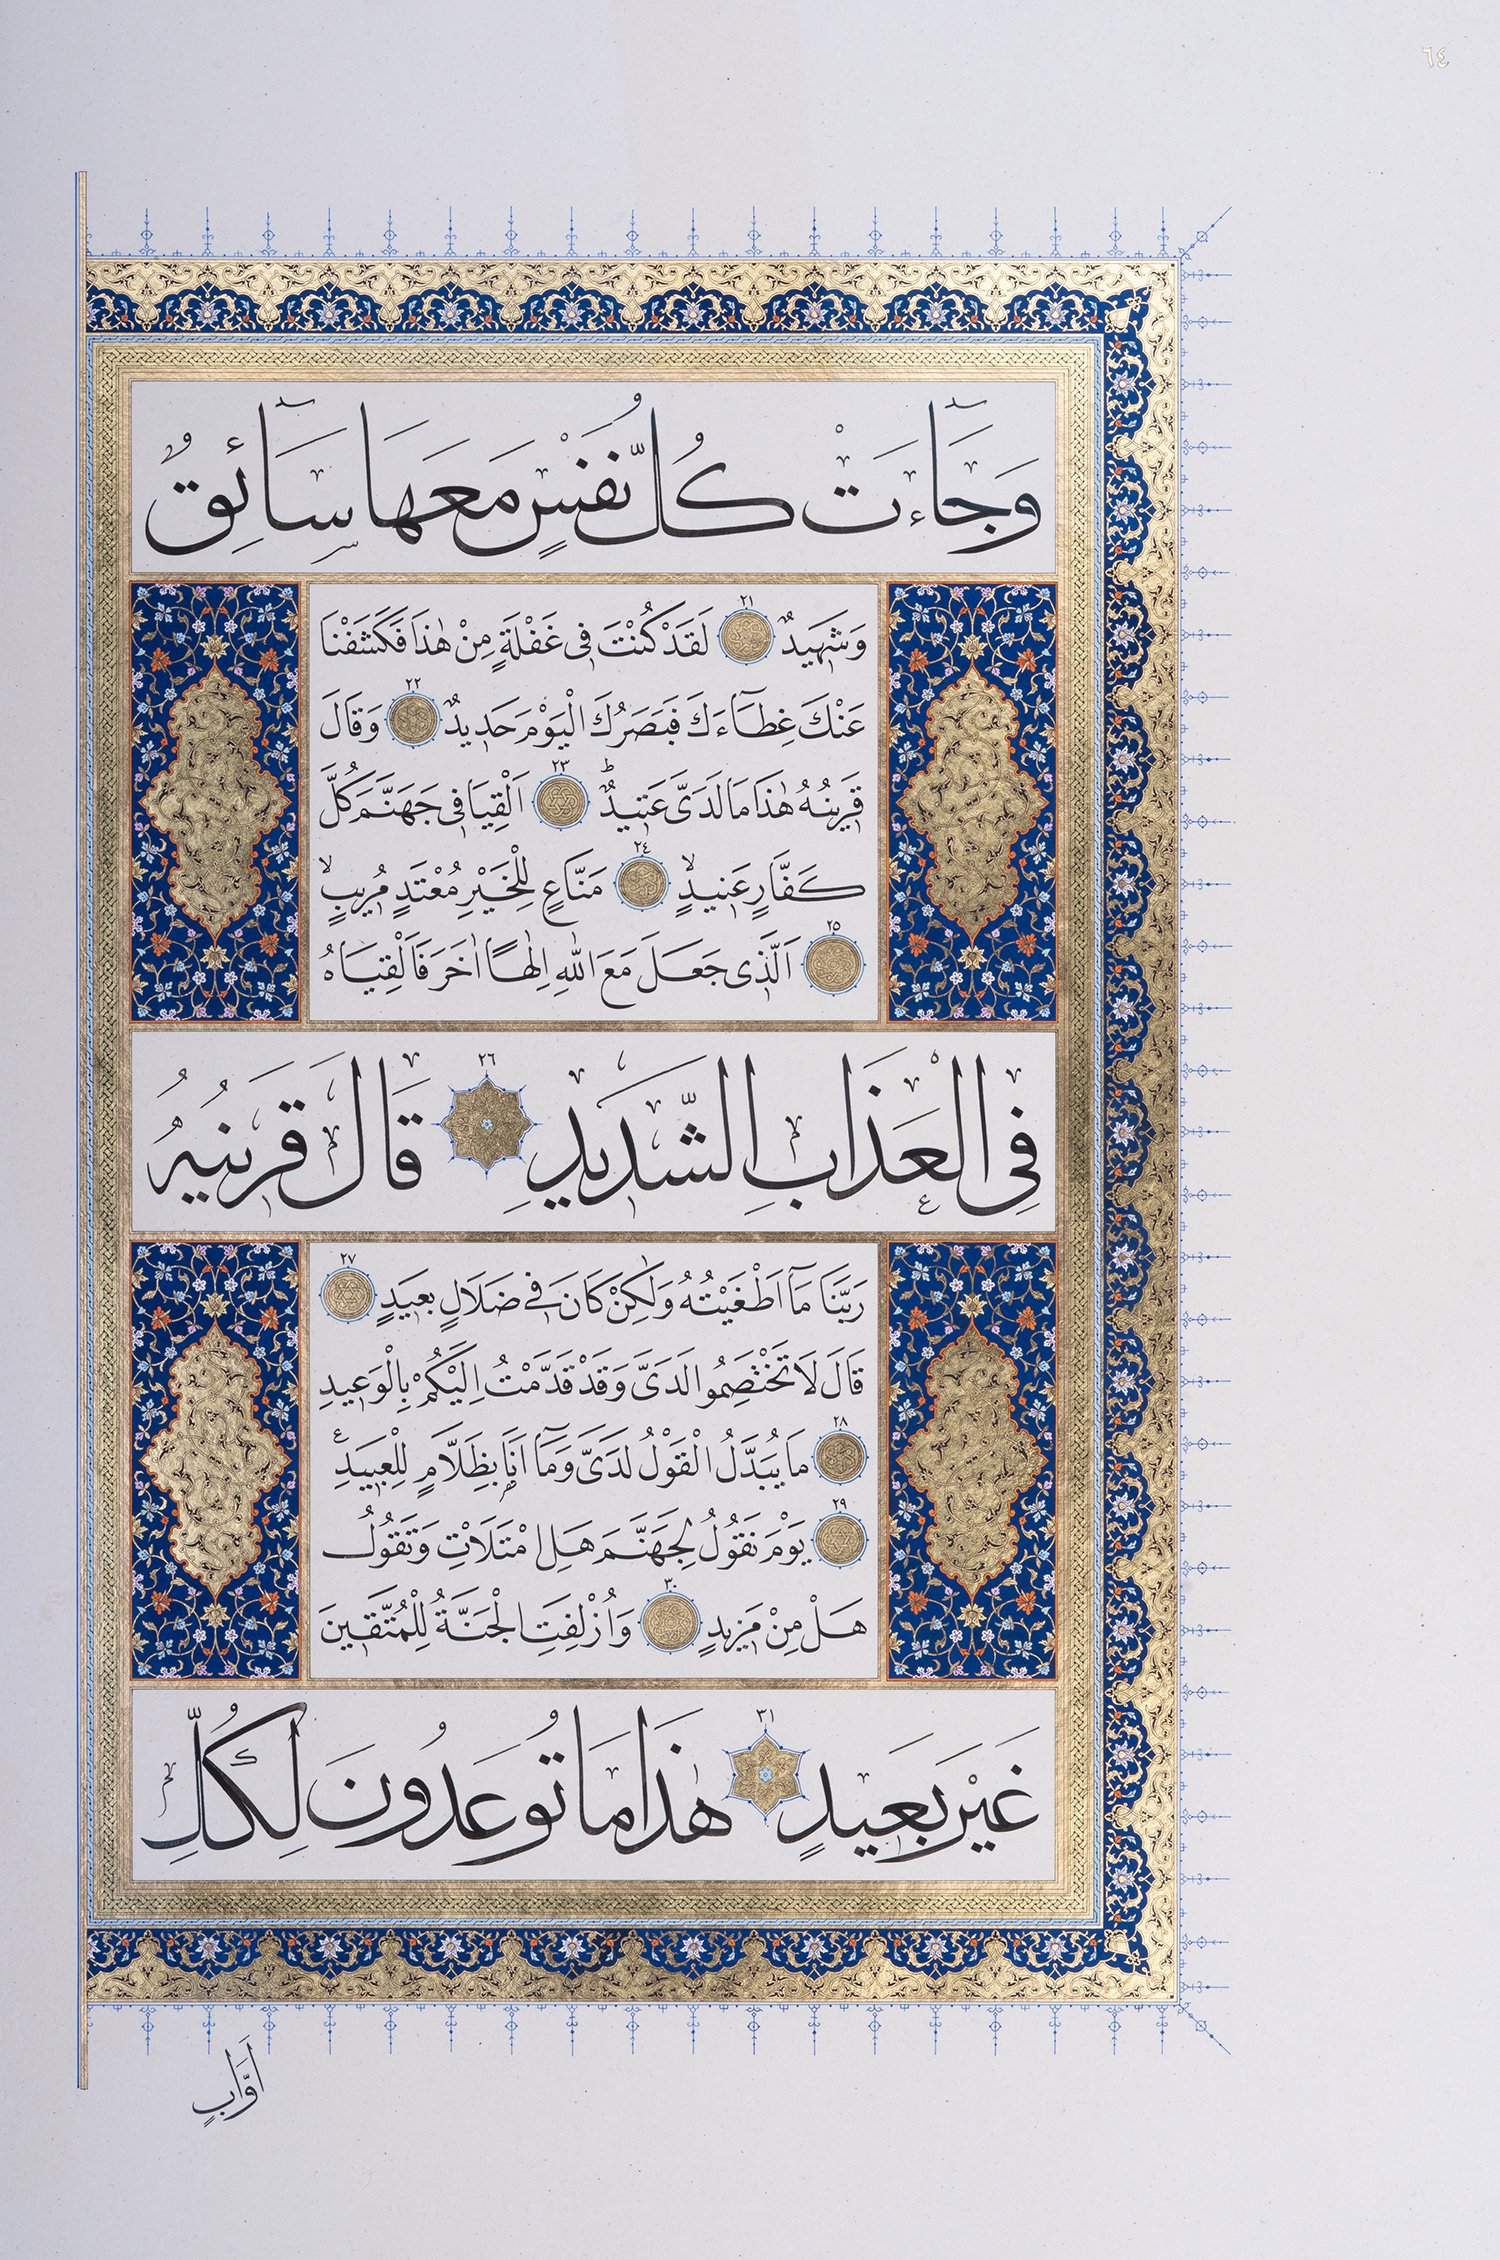 ٦٤
وَجَٓاءَتْ كُلُّ نَفْسٍ مَعَهَا سَٓائِقٌ
وَشَهٖيدٌ ٢١ لَقَدْ كُنْتَ فٖى غَفْلَةٍ مِنْ هٰذَا فَكَشَفْنَا
عَنْكَ غِطَٓاءَكَ فَبَصَرُكَ الْيَوْمَ حَدٖيدٌ ٢٢ وَقَالَ
قَرٖينُهُ هٰذَا مَا لَدَىَّ عَتٖيدٌؕ ٢٣ اَلْقِيَا فٖى جَهَنَّمَ كُلَّ
كَفَّارٍ عَنٖيدٍۙ ٢٤ مَنَّاعٍ لِلْخَيْرِ مُعْتَدٍ مُرٖيبٍۙ
٢٥ اَلَّذٖى جَعَلَ مَعَ اللّٰهِ اِلٰهًا اٰخَرَ فَاَلْقِيَاهُ
فِى الْعَذَابِ الشَّدٖيدِ ٢٦ قَالَ قَرٖينُهُ
رَبَّنَا مَٓا اَطْغَيْتُهُ وَلٰكِنْ كَانَ فٖى ضَلَالٍ بَعٖيدٍ ٢٧
قَالَ لَا تَخْتَصِمُوا لَدَىَّ وَقَدْ قَدَّمْتُ اِلَيْكُمْ بِالْوَعٖيدِ
٢٨ مَا يُبَدَّلُ الْقَوْلُ لَدَىَّ وَمَٓا اَنَا۬ بِظَلَّامٍ لِلْعَبٖيدِ ع
٢٩ يَوْمَ نَقُولُ لِجَهَنَّمَ هَلِ امْتَلَاْتِ وَتَقُولُ
هَلْ مِنْ مَزٖيدٍ ٣٠ وَاُزْلِفَتِ الْجَنَّةُ لِلْمُتَّقٖينَ
غَيْرَ بَعٖيدٍ ٣١ هٰذَا مَا تُوعَدُونَ لِكُلِّ
اَوَّابٍ